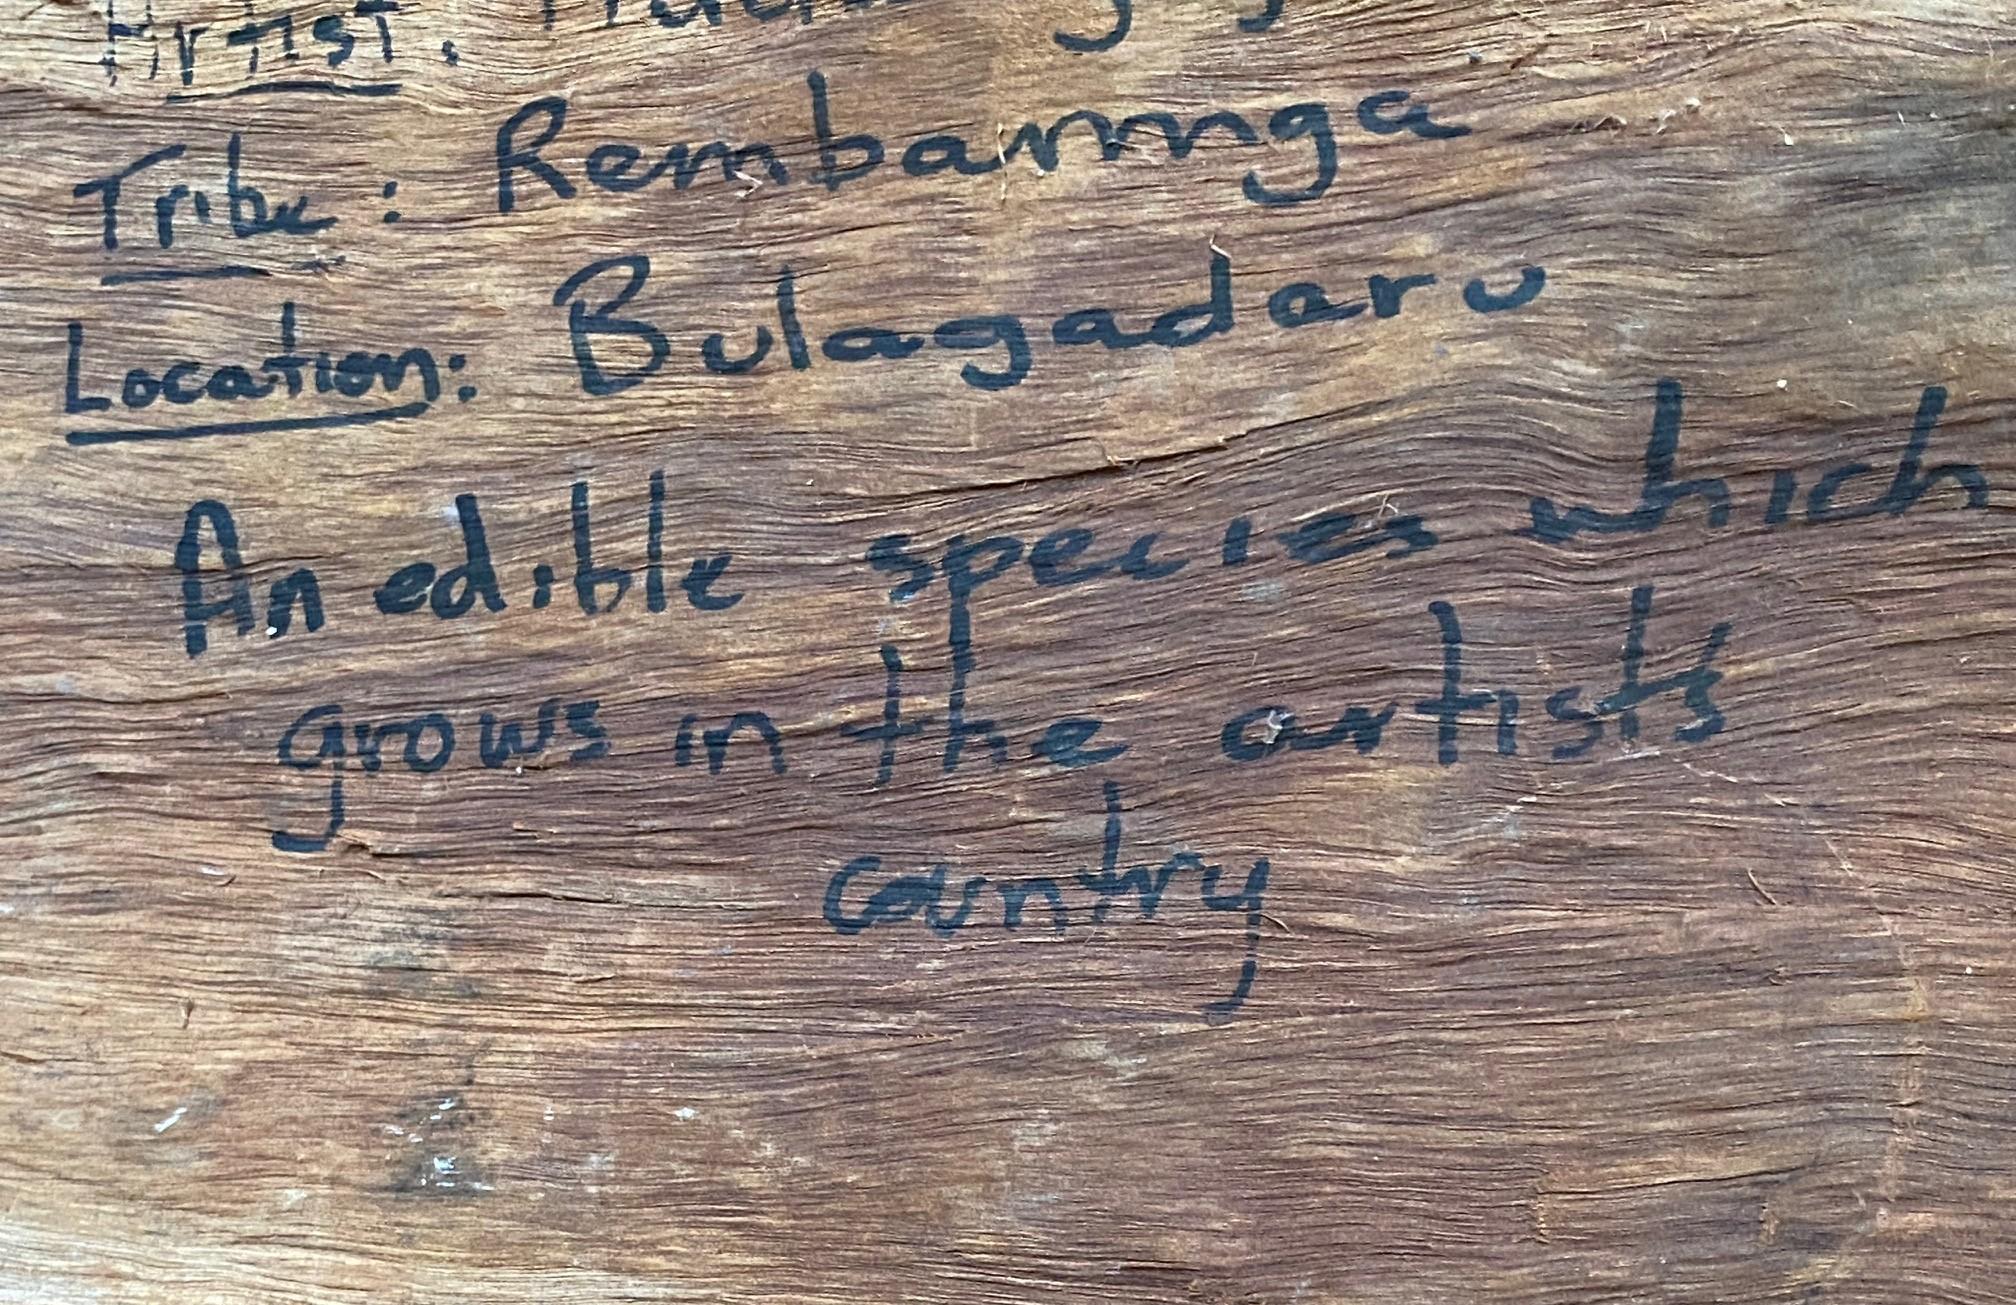 Artist:
Tribe: Rembarrnga
Location: Bulagadaru
An edible species which
grows in the artists
country